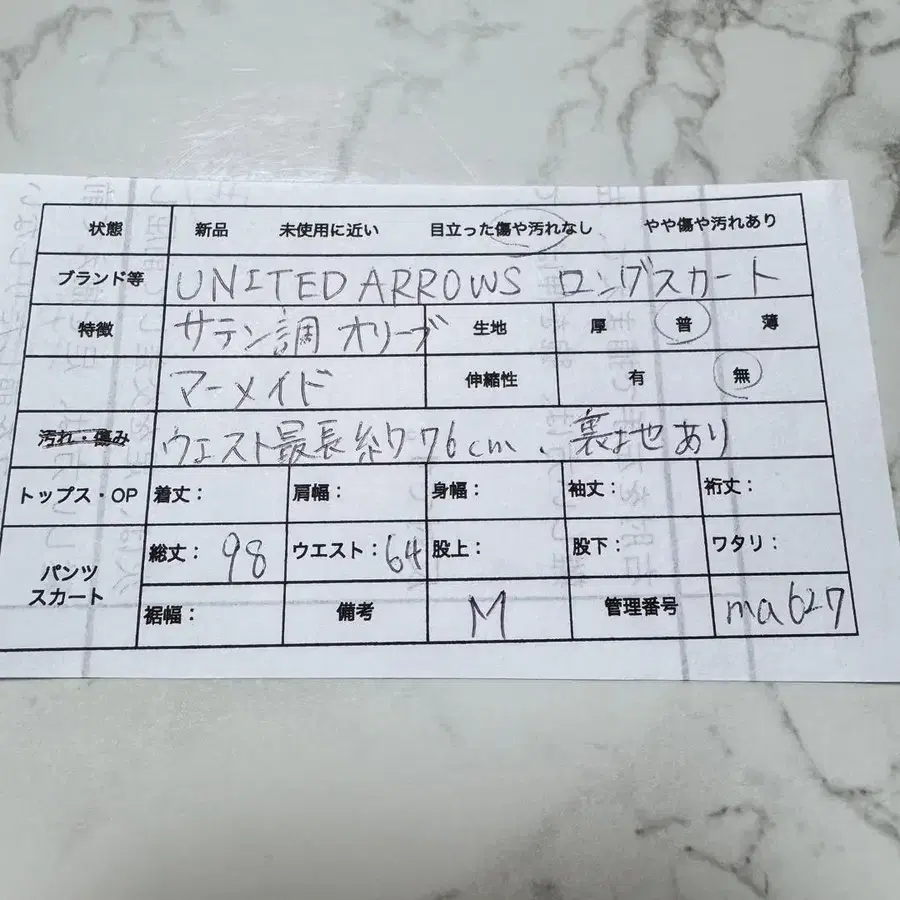 状態 新品 未使用に近い 目立った傷や汚れなし やや傷や汚れあり
ブランド等 UNITED ARROWS ロングスカート
特徴 サテン調 オリーブ 生地 厚 普 薄
マーメイド 伸縮性 有 無
汚れ・傷み ウエスト最長約76cm、裏地あり
トップス・OP 着丈： 肩幅： 身幅： 袖丈： 裄丈：
パンツ スカート 総丈：98 ウエスト：64 股上： 股下： ワタリ：
裾幅： 備考 M 管理番号 ma627